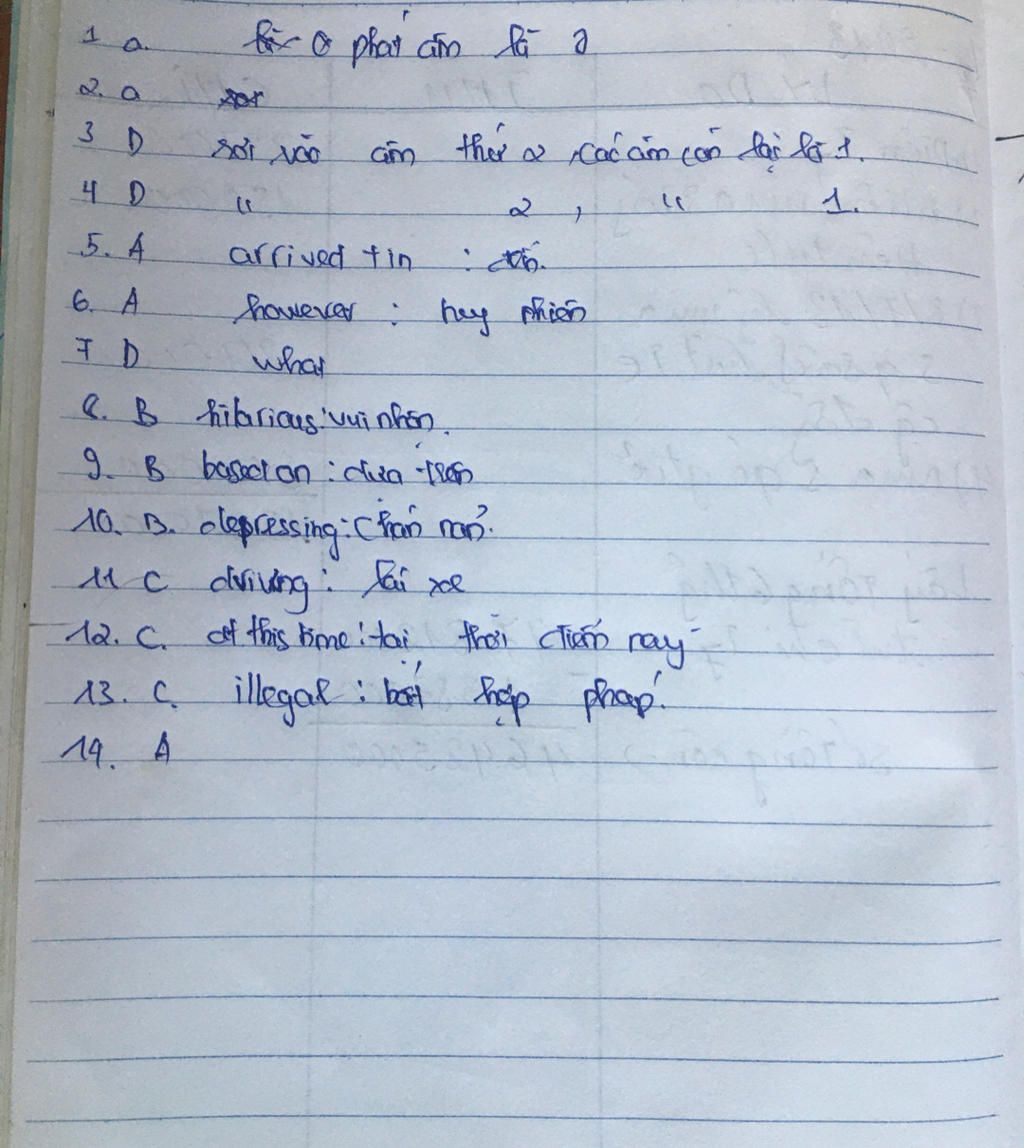 1 a. là o phát âm là ə
2. a
3 D rơi vào âm thứ 2, các âm còn lại là 1.
4 D " 2, " 1.
5. A arrived + in : đến.
6. A however : tuy nhiên
7 D what
8. B hilarious: vui nhộn.
9. B based on : dựa trên
10. B. depressing: chán nản.
11 C driving: lái xe
12. C. at this time: tại thời điểm này
13. C. illegal : bất hợp pháp.
14. A